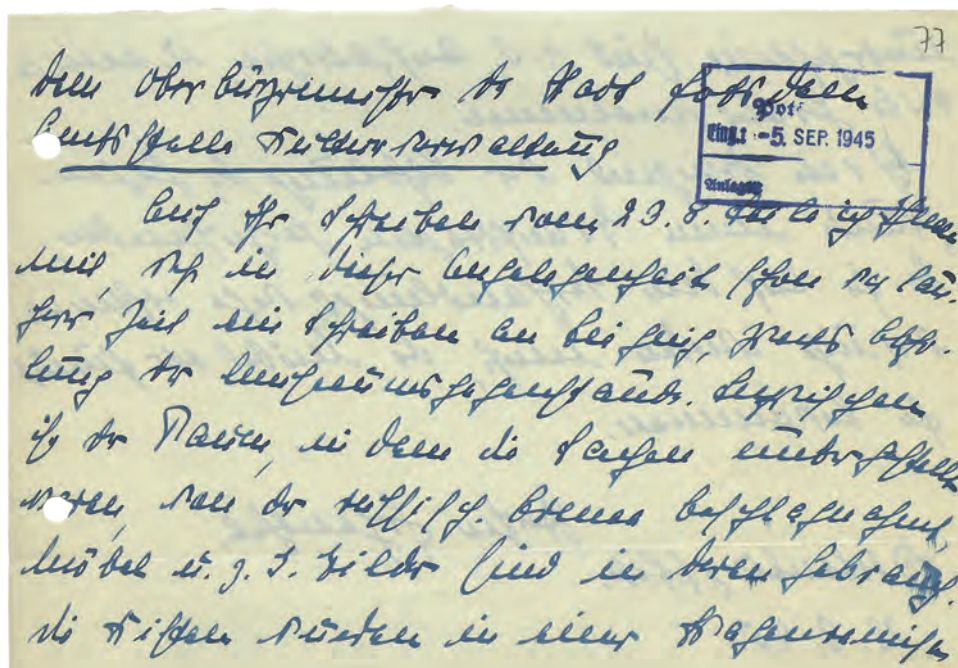 77
Dem Oberbürgermeister der Stadt Potsdam
Amtsstelle Kulturverwaltung
Pots
Eing.: -5. SEP. 1945
Anlagen
Auf Ihr Schreiben vom 29.8. teile ich Ihnen
mit, daß in dieser Angelegenheit schon vor län-
gerer Zeit ein Schreiben an Sie ging, zwecks Abho-
lung der Museumsgegenstände. Inzwischen
ist der Raum, in dem die Sachen untergestellt
waren, von der russisch. Armee beschlagnahmt,
Möbel u. z. T. Bilder sind in deren Gebrauch.
die Kisten wurden in einer Wagenremise